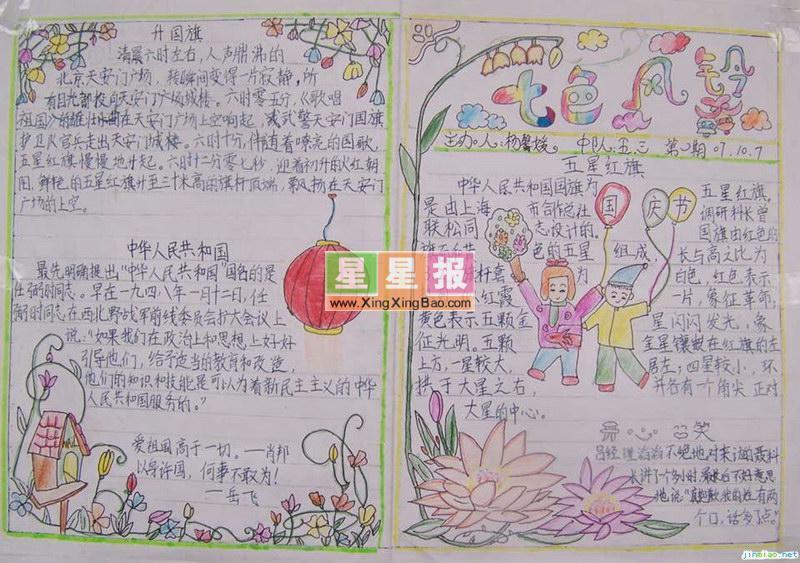 升国旗
清晨六时左右，人声鼎沸的
北京天安门广场，转瞬间变得一片寂静，所
有目光都投向天安门广场城楼。六时零五分，《歌唱
祖国》的雄壮曲在天安门广场上空响起，威武警天安门国旗
护卫队官兵走出天安门城楼。六时十分，伴随着嘹亮的国歌，
五星红旗慢慢地升起。六时十二分零七秒，迎着初升的火红朝
阳，鲜艳的五星红旗升至三十米高的旗杆顶端，飘扬在天安门
广场的上空。
中华人民共和国
最先明确提出“中华人民共和国”国名的是
任弼时同志。早在一九四八年一月十二日，任
弼时同志在西北野战军前线委员会扩大会议上
说：“如果我们在政治上和思想上好好
引导他们，给予适当的教育和改造，
他们的知识和技能是可以为着新民主主义的中华
人民共和国服务的。”
爱祖国高于一切。—肖邦
以身许国，何事不敢为！
—岳飞
星星报
www.XingXingBao.com
七色风铃
主办人：杨馨媛 中队：五.三 第2期 07.10.7
五星红旗
中华人民共和国国旗为 五星红旗。
是由上海 市合作总社 调研科长曾
联松同 志设计的。 国旗由红色的
色的五星 组成， 长与高之比为
杆套 为 白色，红色表示
红霞 一片，象征革命，
黄色表示五颗金 星闪闪发光，象
征光明，五颗 金星镶嵌在红旗的左
上方，一星较大， 居左；四星较小，环
拱于大星之右， 并各有一个角尖正对
大星的中心。
国 庆 节
开心一笑
吕经理滔滔不绝地对来访的
长讲了个多小时，
他说：“真抱歉，我的姓有两
个口，话多了点。”
jinmiao.net